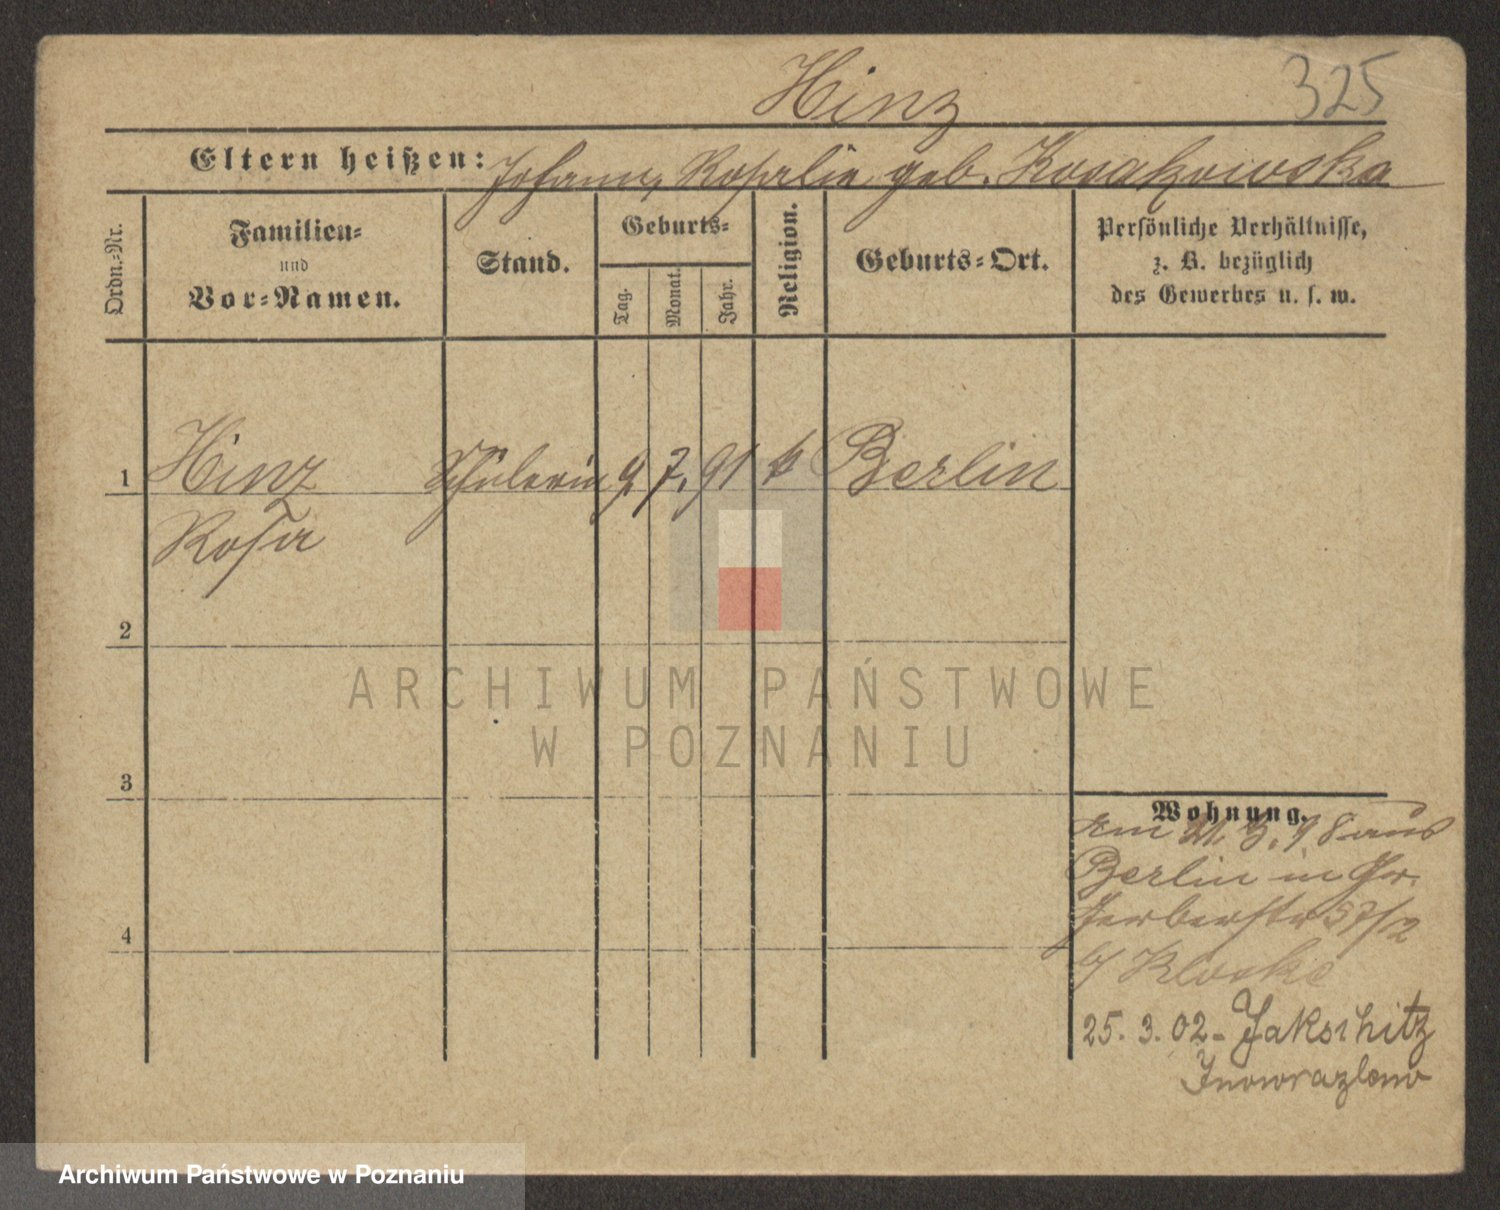 Hinz 325
Eltern heißen: Johann, Rosalie geb. Kosakowska
Ordn.-Nr.
Familien-
und
Vor-Namen.
Stand.
Geburts-
Tag.
Monat.
Jahr.
Religion.
Geburts-Ort.
Persönliche Verhältnisse,
z. B. bezüglich
des Gewerbes u. s. w.
1 Hinz Schülerin 9. 7. 91 k Berlin
Rosa
2
3
4
Wohnung.
Am 21. 3. 98 aus
Berlin in Gr.
Gerberstr 57/2
b/ Kloske
25. 3. 02 - Jakschitz
Inowrazlow
ARCHIWUM PAŃSTWOWE
W POZNANIU
Archiwum Państwowe w Poznaniu